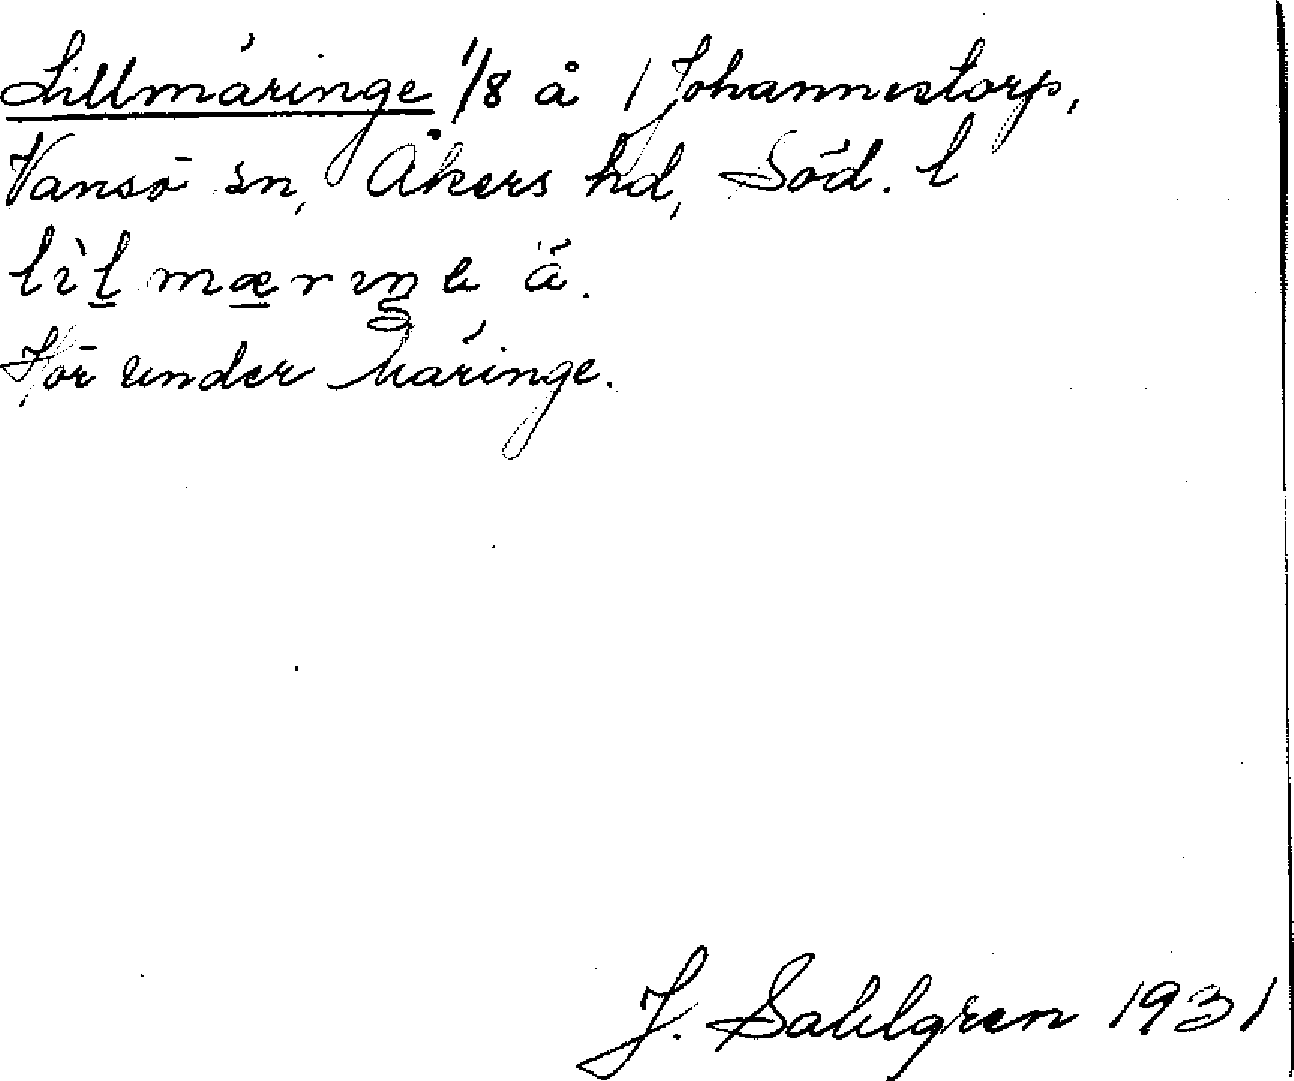 Lillmäringe 1/8 å 1 Johannestorp,
Vansö sn, Åkers hd, Söd. l
lìlmæriŋe ä.
Hör under Märinge.
J. Sahlgren 1931